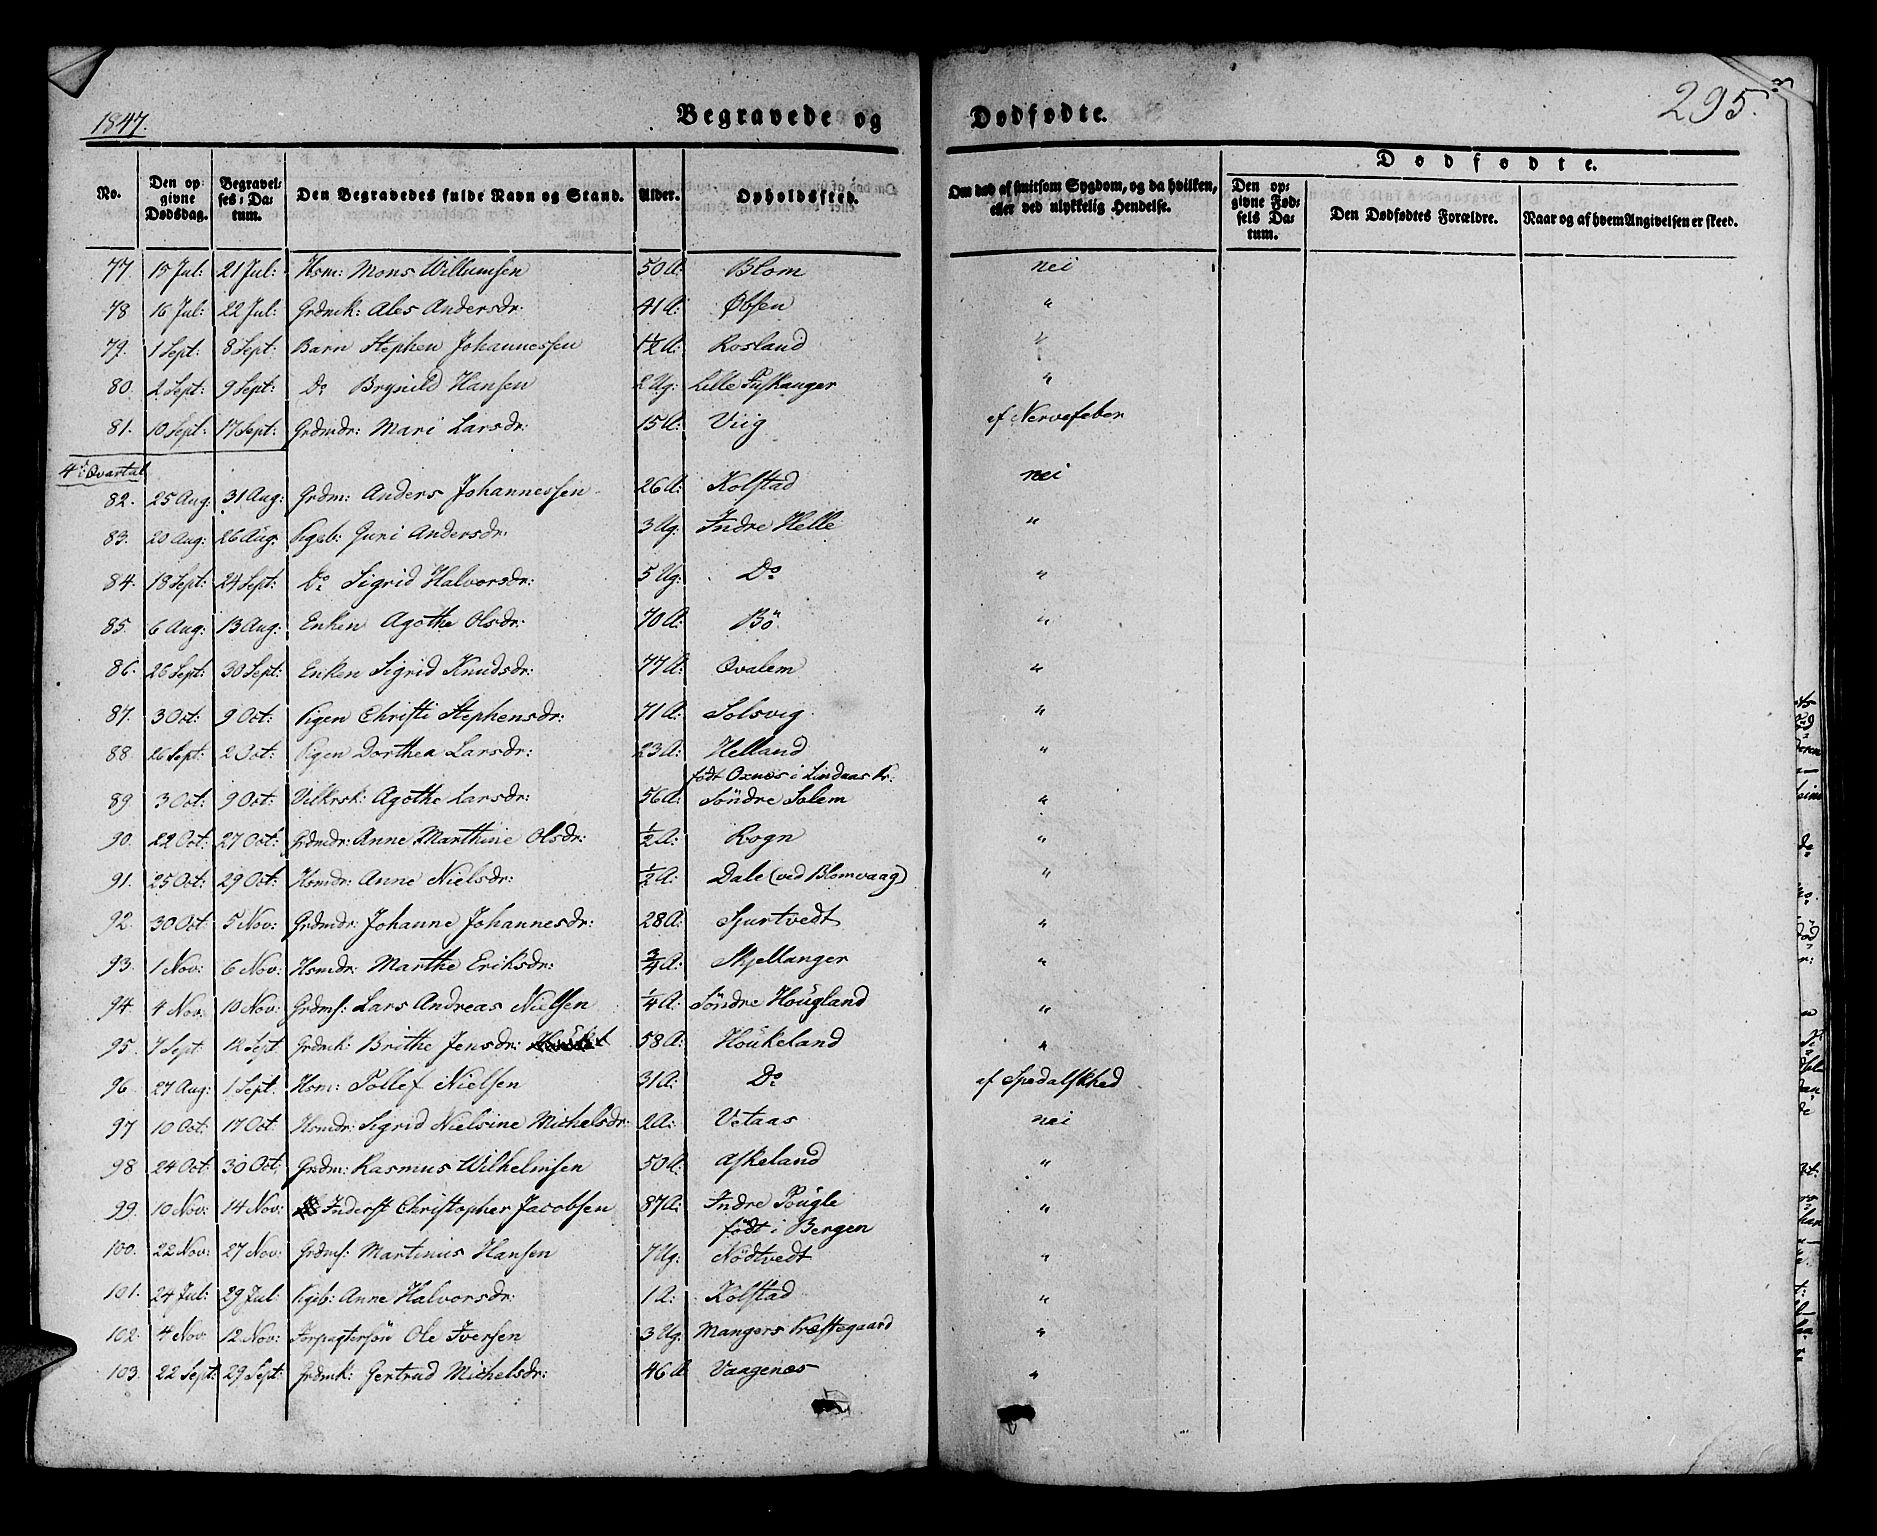 1847.
Begravede og Dødfødte.
295.
No.
Den opgivne Dødsdag.
Begravelses-Datum.
Den Begravedes fulde Navn og Stand.
Alder.
Opholdssted.
Om død af smitsom Sygdom, og da hvilken, eller ved ulykkelig Hendelse.
Dødfødte.
Den opgivne Fødsels Datum.
Den Dødfødtes Forældre.
Naar og af hvem Angivelsen er skeed.
77. 15 Jul: 21 Jul: Hsm: Mons Willumsen 50 A: Blom nei
78 16 Jul: 22 Jul: Grdmk: Ales Andersdr: 41 A: Øbsen "
79. 1 Sept: 8 Sept: Barn Stephen Johannessen 1½ A: Rosland "
80. 2 Sept: 9 Sept: Do Brynild Hansen 2 Ug: Lille Fuskanger "
81. 10 Sept: 17 Sept: Grdmdr: Mari Larsdr: 15 A: Viig af Nervefeber
4de Qvartal
82. 25 Aug: 31 Aug: Grdm: Anders Johannessen 26 A: Kolstad nei
83. 20 Aug: 26 Aug: Pigeb: Guri Andersdr: 3 Ug: Indre Helle "
84. 18 Sept: 24 Sept: Do Sigrid Halvorsdr: 5 Ug: Do "
85. 6 Aug: 13 Aug: Enken Agothe Olsdr: 70 A: Bö "
86. 26 Sept: 30 Sept: Enken Sigrid Knudsdr: 77 A: Qvalem "
87. 3 Oct: 9 Oct: Pigen Christi Stephensdr: 71 A: Solsvig "
88. 26 Sept: 2 Oct: Pigen Dorthea Larsdr: 23 A: Helland "
født Oxnes i Lindaas Pr:
89 3 Oct: 9 Oct: Vilkrsk: Agothe Larsdr: 56 A: Söndre Solem "
90. 22 Oct: 27 Oct: Grdmdr: Anne Marthine Olsdr: ½ A: Rogn "
91. 25 Oct: 29 Oct: Hsmdr: Anne Nielsdr: ½ A: Dale (ved Blomvaag) "
92. 30 Oct: 5 Nov: Grdmdr: Johanne Johannesdr: 28 A: Sjurtvedt "
93. 1 Nov: 6 Nov: Hsmdr: Marthe Eriksdr: ¾ A: Skjellanger "
94. 4 Nov: 10 Nov: Grdms: Lars Andreas Nielsen ¼ A: Söndre Hougland "
95. 7 Sept 12 Sept Grdmk: Brithe Jensdr: 58 A: Houkeland "
96. 27 Aug: 1 Sept: Hsm: Tollef Nielsen 31 A: Do af Spedalskhed
97 10 Oct: 17 Oct: Hsmdr: Sigrid Nielsine Michelsdr: 2 A: Vetaas nei
98. 24 Oct: 30 Oct: Grdm: Rasmus Wilhelmsen 50 A: Askeland "
99. 10 Nov: 14 Nov: Inderst Christopher Jacobsen 87 A: Indre Tougle "
født i Bergen
100. 22 Nov: 27 Nov: Grdms: Martinus Hansen 7 Ug: Nödtvedt "
101. 24 Jul: 29 Jul: Pigeb: Anne Halvorsdr: 1 A: Kolstad "
102. 4 Nov 12 Nov: Forpagtersön Ole Iversen 3 Ug: Mangers Præstegaard "
103. 22 Sept: 29 Sept: Grdmk: Gertrud Michelsdr: 46 A Vaagenes "